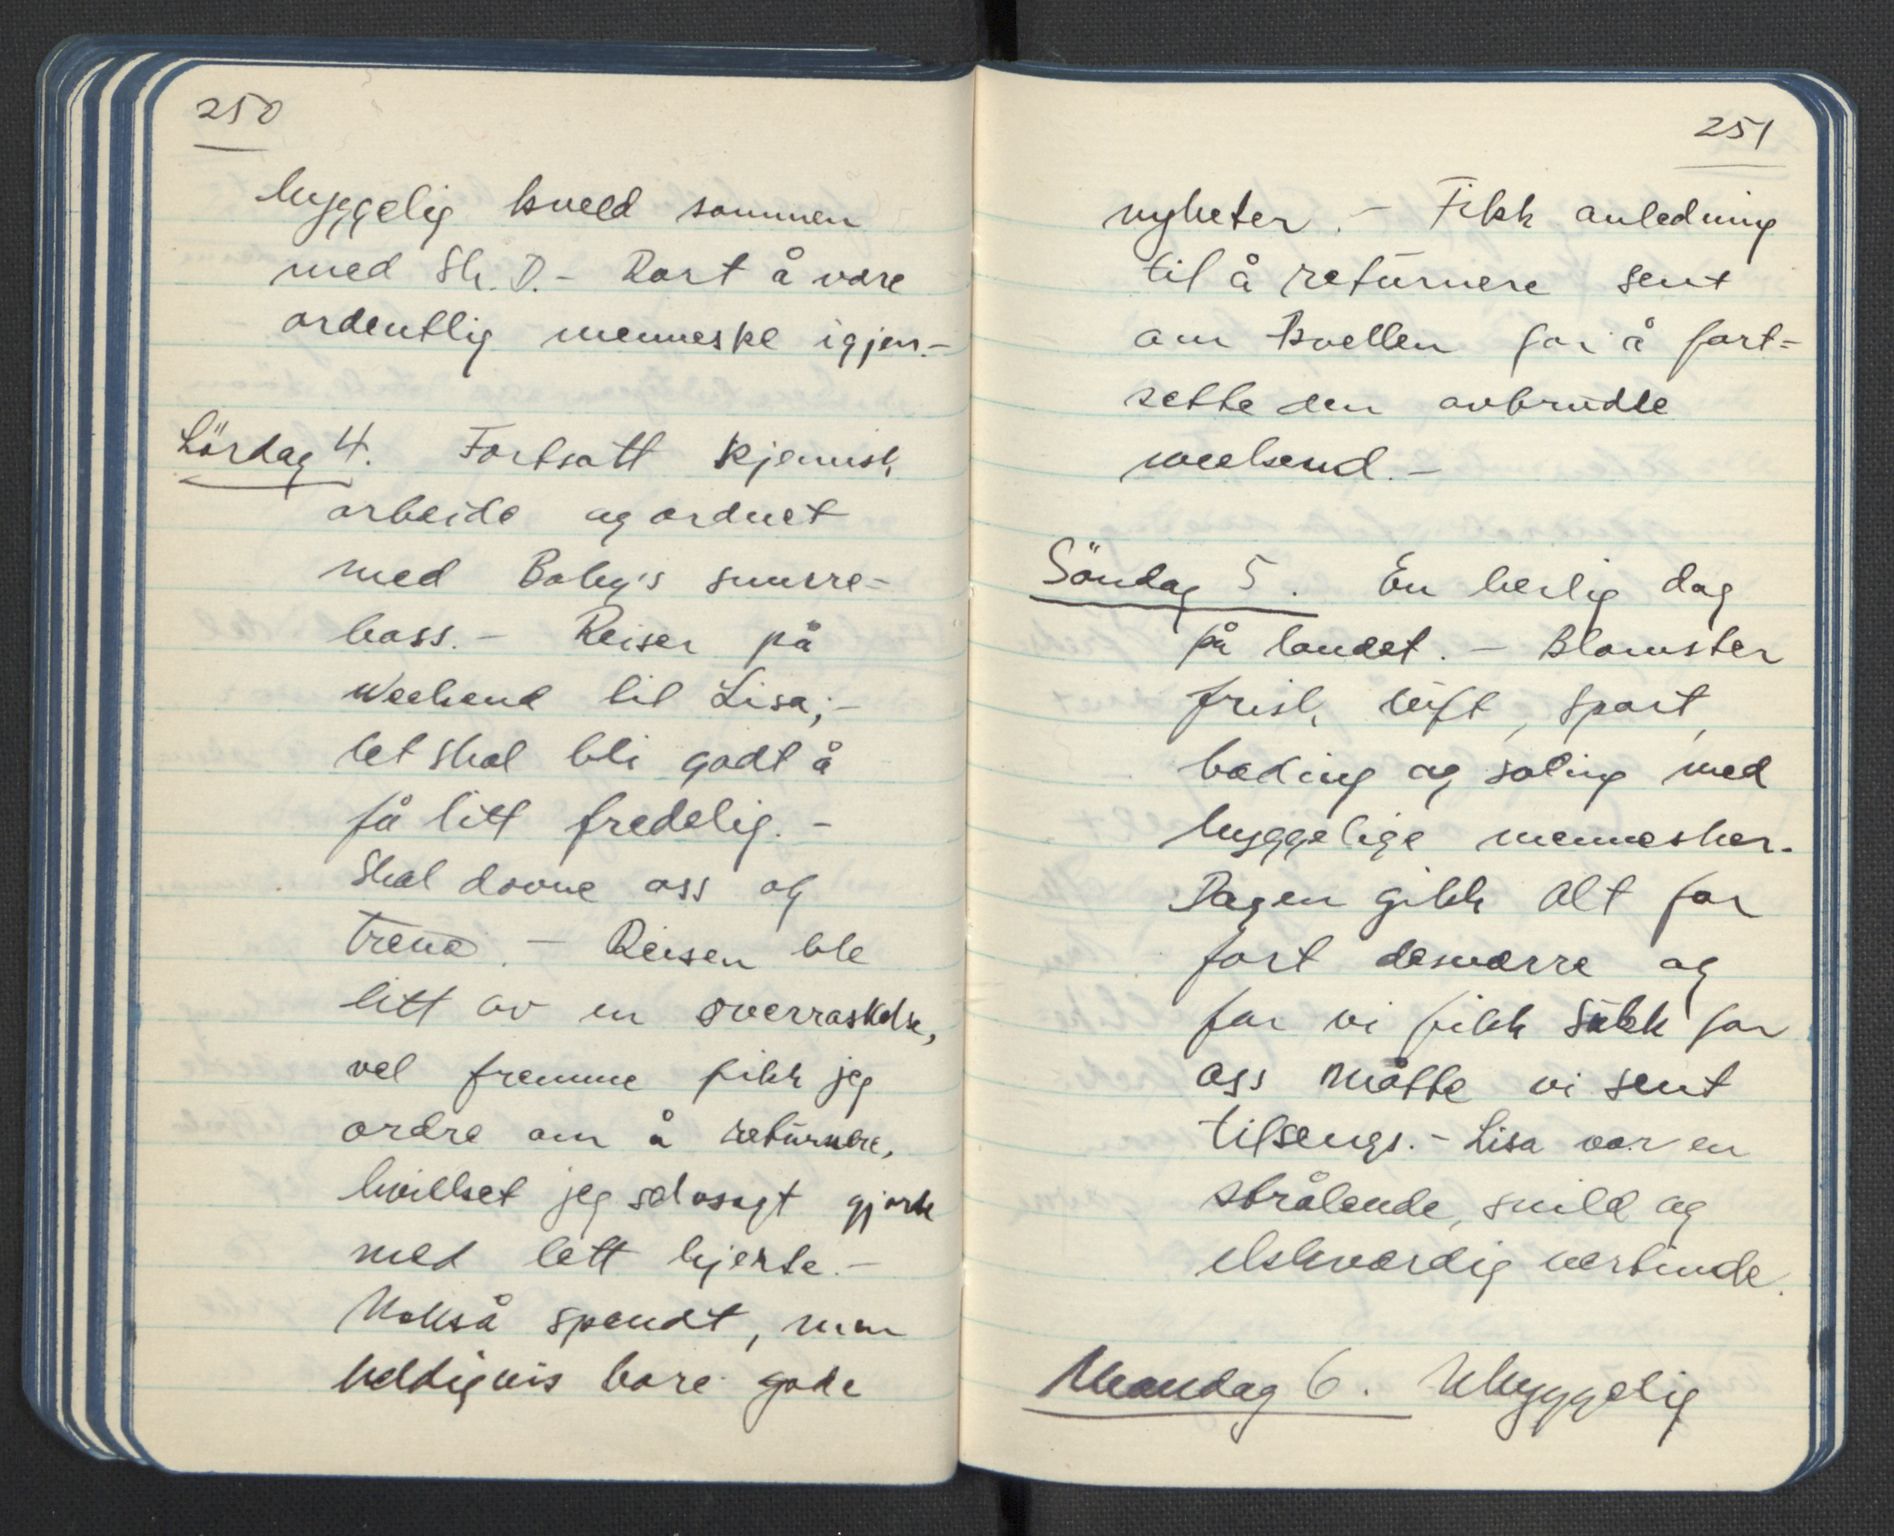 250
hyggelig kveld sammen
med Sk. D. - Rart å være
ordentlig menneske igjen. -
Lördag 4. Fortsatt kjemisk
arbeide og ordnet
med Baby's snurre-
bass. - Reiser på
Weekend til Lisa; -
det skal bli godt å
få litt fredelig. -
Skal dovne oss og
trene. - Reisen ble
litt av en overraskelse,
vel fremme fikk jeg
ordre om å returnere,
hvilket jeg selvsagt gjorde
med lett hjerte. -
Nokså spendt, men
heldigvis bare gode
251
nyheter. - Fikk anledning
til å returnere sent
om kvellen for å fort-
sette den avbrudte
weekend. -
Söndag 5. En herlig dag
på landet. - Blomster
frisk luft, sport,
bading og soling med
hyggelige mennesker.
Dagen gikk alt for
fort desværre og
før vi fikk sukk for
oss måtte vi sent
tilsengs. - Lisa var en
strålende, snild og
elskværdig vertinde.
Mandag 6. Uhyggelig